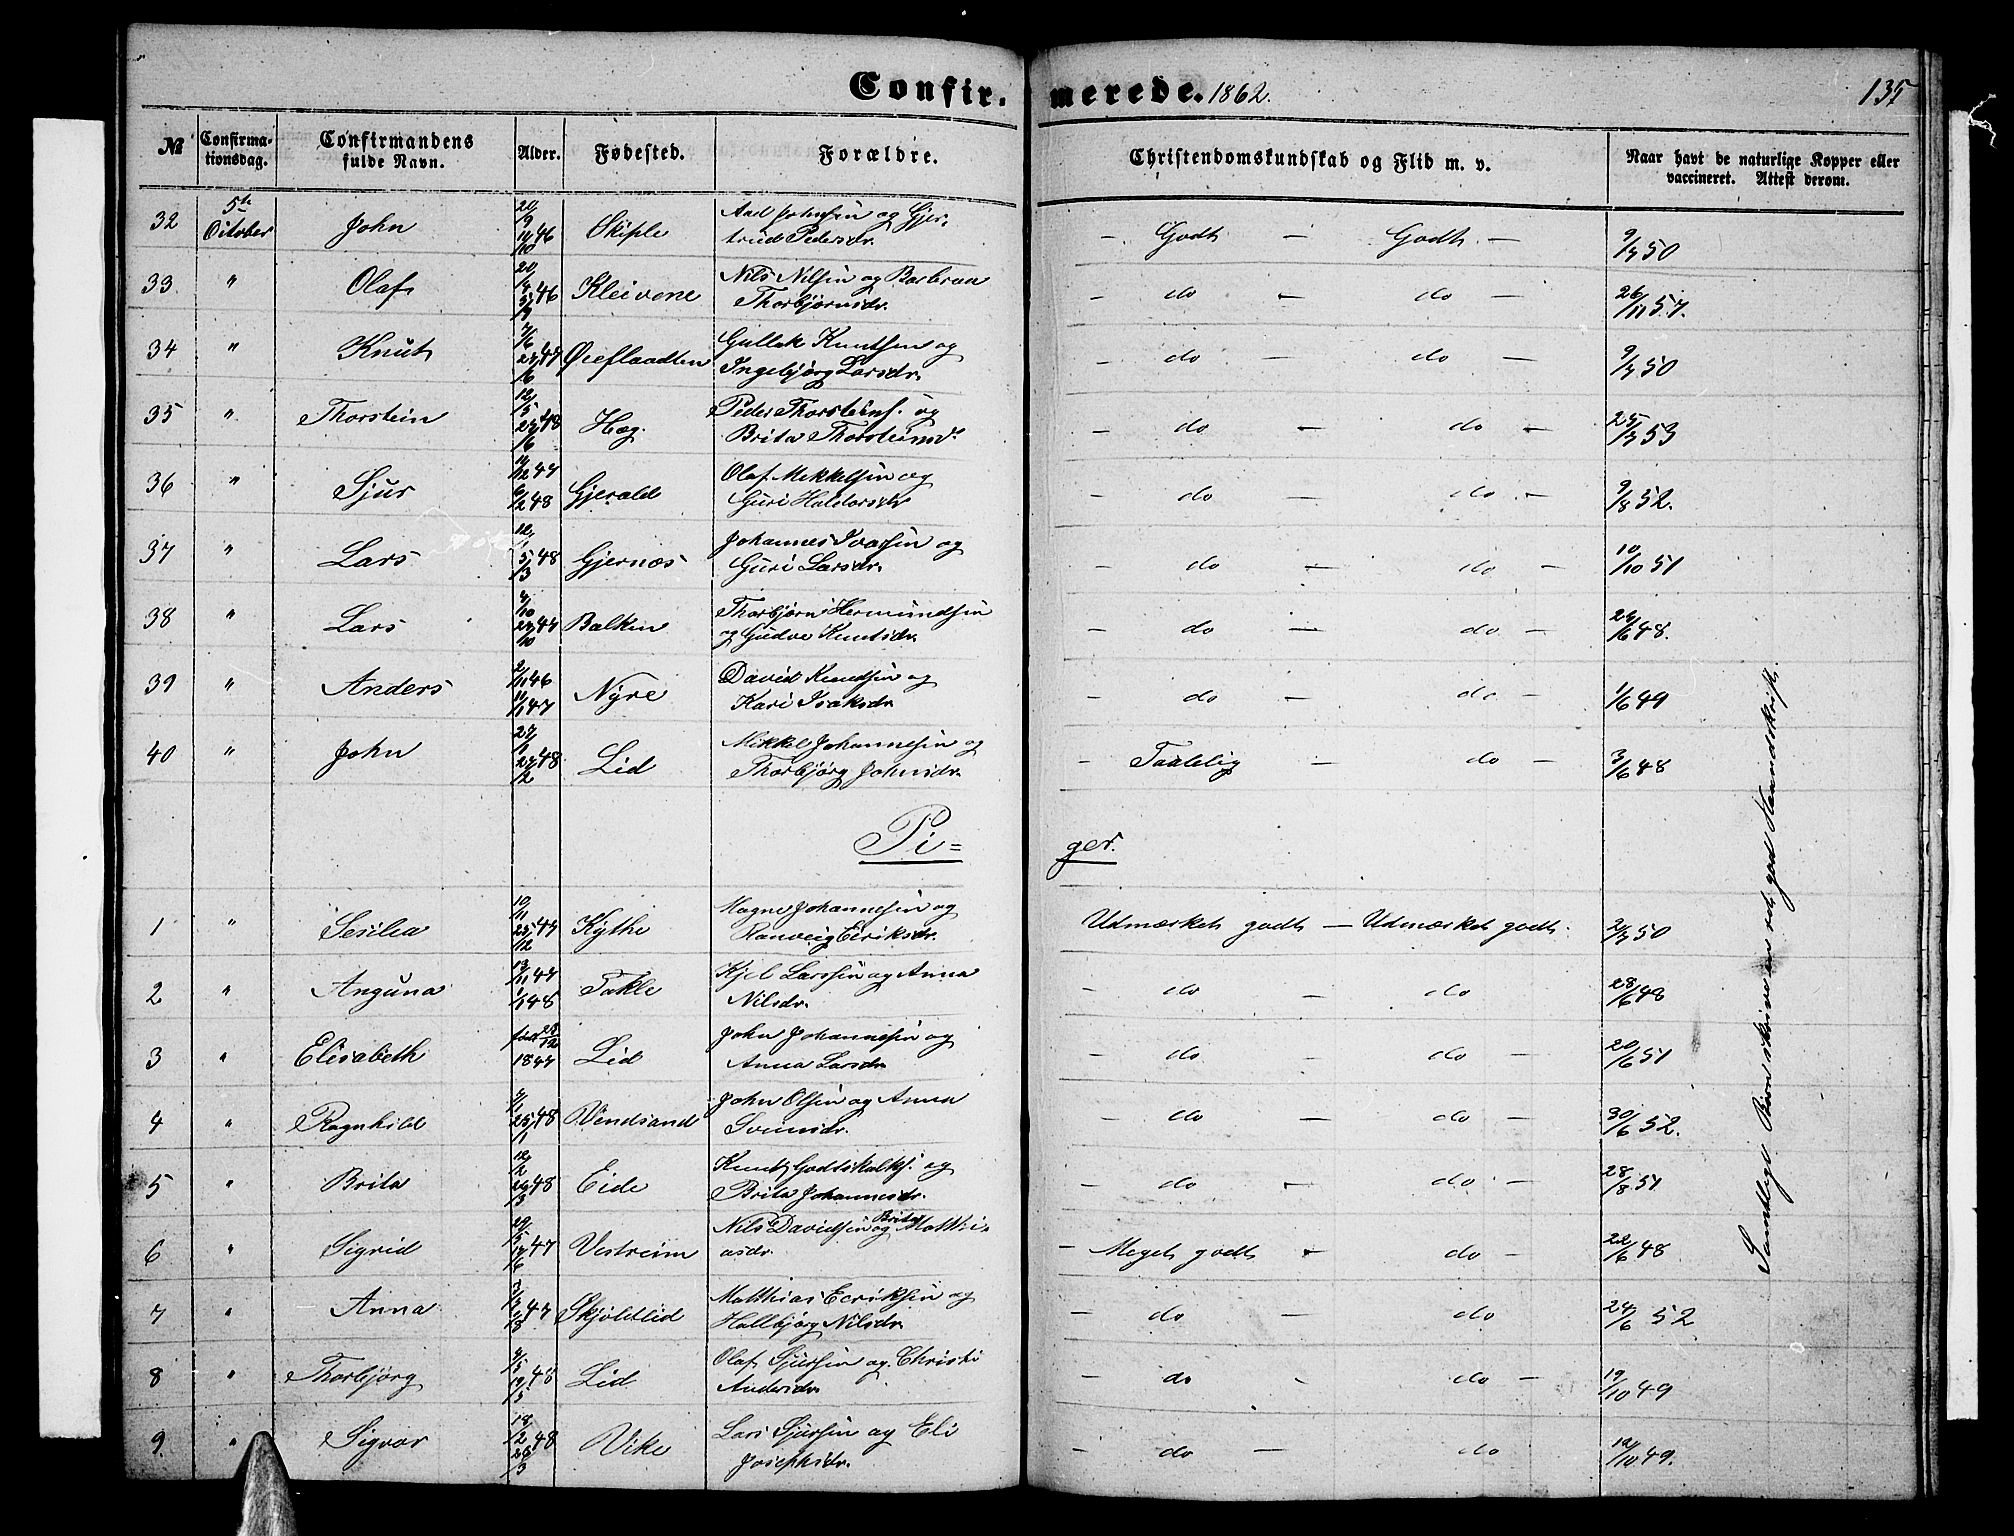 Confir- merede. 1862. 135
No Confirma-tionsdag. Confirmandens fulde Navn. Alder. Fødested. Forældre. Christendomskundskab og Flid m. v. Naar havt de naturlige Kopper eller vaccineret. Attest derom.
32 5te October John 20/9 11/10 46 Skiple Aad Johnsen og Gjertrud Pedersdr. - Godt - Godt - 9/7 50
33 " Olaf 46 Kleivene Nils Nilsen og Barbraa Thorbjørnsdr. - do - do - 26/11 57.
34 " Knut 7/6 27/6 47 Gullak Knutsen og Ingebjørg Larsdr. - do - do - 9/7 50
35 " Thorstein 12/5 27/6 48 Hæg. Peder Thorsteins. og Brita Thorsteinsd. - do - do - 25/7 53
36 " Sjur 11/12 47 6/2 48 Gjerald Olaf Mikkelsen og Guri Haldorsdr - do - do - 9/8 52.
37 " Lars 12/1 5/3 48 Gjernæs Johannes Ivarsen og Guri Larsdr. - do - do - 10/10 51
38 " Lars 4/10 24/10 47 Balken Thorbjørn Hermundsen og Gudve Knutsdr. - do - do - 24/6 48.
39 " Anders 2/11 46 1/1 47 Nyre David Knudsen og Kari Isaksdr. - do - do - 1/6 49
40 " John 27/1 27/2 48 Lid Mikkel Johannesen og Thorbjørg Johnsdr. - Taalelig - do - 3/6 48
Pi= ger.
1 " Sesilia 10/11 25/12 47 Kythe Magne Johannesen og Ranveig Eriksdr. Udmærket godt - Udmærket godt. 2/7 50
2 " Anguna 13/11 47 1/1 48 Takle Kjel Larssen og Anna Nilsdr. - do - do 28/6 48
3 " Elisabeth født 28/12 1847 Lid John Johannesen og Anna Larsdr - do - do - 20/6 51
4 " Ragnhild 4/1 25/1 48 Vendsand John Olsen og Anna Sveinsdr. - do - do - 30/6 52.
5 " Brita 12/2 26/3 48 Eide Knut Godtskalks. og Brita Johannesdr. - do - do - 28/8 51
6 " Sigrid 29/5 17/6 47 Vestreim Nils Davidsen og Brita Matthiasdr. - Meget godt - do - 22/6 48
7 " Anna 47 Skjoldlid Matthias Eeriksen og Hallbjørg Nilsdr. - do - do 24/6 52
8 " Thorbjørg 4/5 19/5 48 Lid Olaf Sjursen og Christi Andersdr. - do - do - 19/10 49
9. " Sigvor 18/2 26/3 48 Vike Lars Sjursen og Eli Josephsdr. - do - do 12/10 49.
Samtlige Børn skrive en ret god Haandskrift.